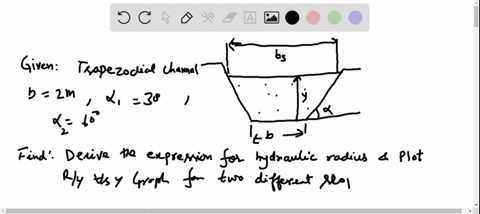 Given: Trapezodial channel
b = 2m , α1 = 30 ,
α2 = 60°
bs
y
α
b
Find: Derive the expression for hydraulic radius & Plot
R/y Vs y Graph for two different